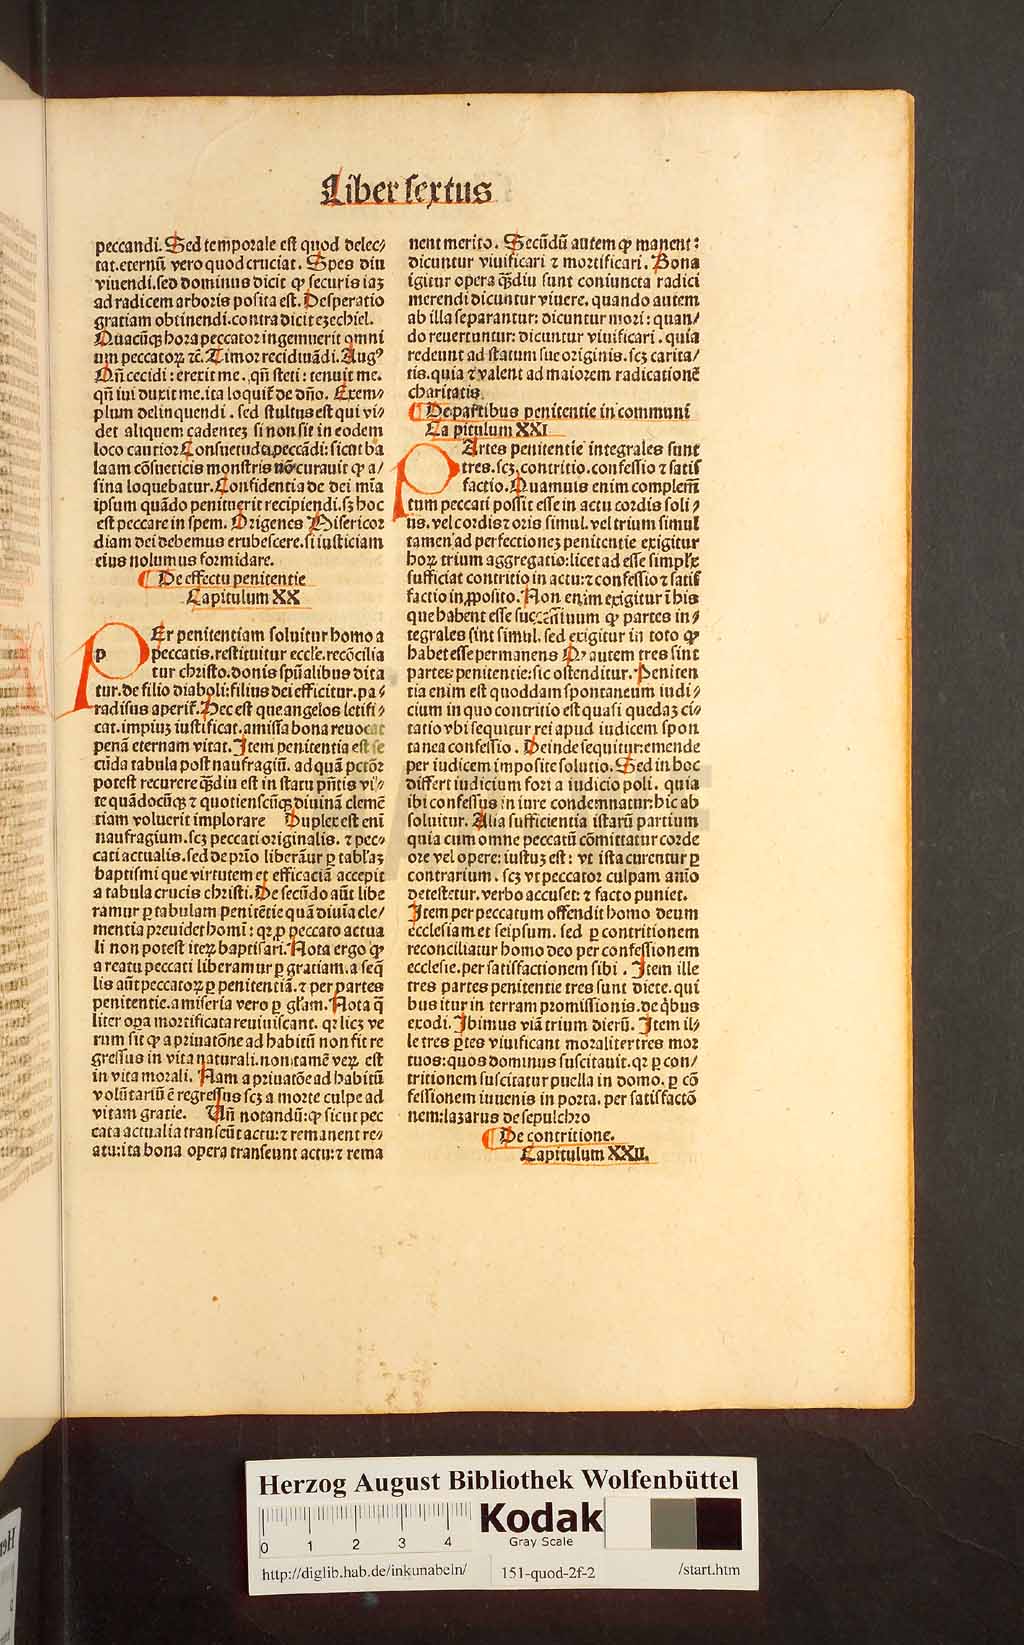 Liber sextus
peccandi. Sed temporale est quod delec⸗
tat. eternū vero quod cruciat. Spes diu
viuendi. sed dominus dicit ꝙ securis iaꝫ
ad radicem arboris posita est. Desperatio
gratiam obtinendi. contra dicit ezechiel.
Quacūqꝫ hora peccator ingemuerit omni
um peccatoꝝ ⁊c̄. Timor recidiuādi. Augꝰ
Qn̄ cecidi : erexit me. qn̄ steti : tenuit me.
qn̄ iui duxit me. ita loquit̄ de dn̄o. Exem⸗
plum delinquendi. sed stultus est qui vi⸗
det aliquem cadenteꝫ si non sit in eodem
loco cautior Consuetudo peccādi : sicut ba
laam cōsueticis monstris nō curauit ꝙ a⸗
sina loquebatur. Confidentia de dei mīa
ipsum quādo penituerit recipiendi. sꝫ hoc
est peccare in spem. Origenes Misericor
diam dei debemus erubescere. si iusticiam
eius nolumus formidare.
De effectu penitentie
Capitulum XX
p
PEr penitentiam soluitur homo a
peccatis. restituitur eccl'e. recōcilia
tur christo. donis spūalibus dita
tur. de filio diaboli : filius dei efficitur. pa⸗
radisus aperit̄. Hec est que angelos letifi⸗
cat. impius iustificat. amissa bona reuocat
penā eternam vitat. Item penitentia est se
cūda tabula post naufragiū. ad quā pctōꝝ
potest recurere qᷓdiu est in statu pn̄tis vi⸗
te quādocūqꝫ ⁊ quotienscūqꝫ diuinā clemē
tiam voluerit implorare Duplex est enī
naufragium. scꝫ peccati originalis. ⁊ pec⸗
cati actualis. sed de prīo liberāur ꝑ tabl'aꝫ
baptismi que virtutem et efficaciā accepit
a tabula crucis christi. De secūdo aūt libe
ramur ꝑ tabulam penitētie quā diuīa cle⸗
mentia preuidet homī : qꝛ ꝓ peccato actua
li non potest iteꝝ baptisari. Nota ergo ꝙ
a reatu peccati liberamur ꝑ gratiam. a seq̄
lis aūt peccatoꝝ ꝑ penitentiā. ⁊ per partes
penitentie. a miseria vero ꝑ gl'am. Nota q̄
liter oꝑa mortificata reuiuiscant. qꝛ licꝫ ve
rum sit ꝙ a priuatōne ad habitū non fit re
gressus in vita naturali. non tamē veꝝ est
in vita morali. Nam a priuatōe ad habitū
volūtariū ē regressus scꝫ a morte culpe ad
vitam gratie. Un̄ notandū : ꝙ sicut pec
cata actualia transeūt actu : ⁊ remanent re⸗
atu : ita bona opera transeunt actu : ⁊ rema
nent merito. Secūdū autem ꝙ manent :
dicuntur viuificari ⁊ mortificari. Bona
igitur opera qᷓdiu sunt coniuncta radici
merendi dicuntur viuere. quando autem
ab illa separantur : dicuntur mori : quan⸗
do reuertuntur : dicuntur viuificari. quia
redeunt ad statum sue originis. scꝫ carita⸗
tis. quia ⁊ valent ad maiorem radicationē
charitatis
De partibus penitentie in communi
Ca pitulum XXI
PArtes penitentie integrales sunt
tres. scꝫ contritio. confessio ⁊ satis
factio. Quamuis enim complem̄
tum peccati possit esse in actu cordis soli⸗
us. vel cordis ⁊ oris simul. vel trium simul
tamen ad perfectioneꝫ penitentie exigitur
hoꝝ trium aggregatio : licet ad esse simpl'r
sufficiat contritio in actu : ⁊ confessio ⁊ satis
factio in ꝓposito. Non enim exigitur ī his
que habent esse successiuum ꝙ partes in⸗
tegrales sint simul. sed exigitur in toto ꝙ
habet esse permanens Qꝫ autem tres sint
partes penitentie : sic ostenditur. Peniten
tia enim est quoddam spontaneum iudi⸗
cium in quo contritio est quasi quedaꝫ ci⸗
tatio vbi sequitur rei apud iudicem spon
tanea confessio. Deinde sequitur : emende
per iudicem imposite solutio. Sed in hoc
differt iudicium fori a iudicio poli. quia
ibi confessus in iure condemnatur : hic ab
soluitur. Alia sufficientia istarū partium
quia cum omne peccatū cōmittatur corde
ore vel opere : iustuꝫ est : vt ista curentur ꝑ
contrarium. scꝫ vt peccator culpam anīo
detestetur. verbo accuset : ⁊ facto puniet.
Item per peccatum offendit homo deum
ecclesiam et seipsum. sed ꝑ contritionem
reconciliatur homo deo per confessionem
ecclesie. per satisfactionem sibi. Item ille
tres partes penitentie tres sunt diete. qui
bus itur in terram promissionis. de qͥbus
exodi. Ibimus viā trium dierū. Item il⸗
le tres ꝑtes viuificant moraliter tres mor
tuos : quos dominus suscitauit. qꝛ ꝑ con⸗
tritionem suscitatur puella in domo. ꝑ cō
fessionem iuuenis in porta. per satisfactō
nem : lazarus de sepulchro
De contritione.
Capitulum XXII.
Herzog August Bibliothek Wolfenbüttel
Kodak
Gray Scale
0 1 2 3 4
http://diglib.hab.de/inkunabeln/ 151-quod-2f-2 /start.htm